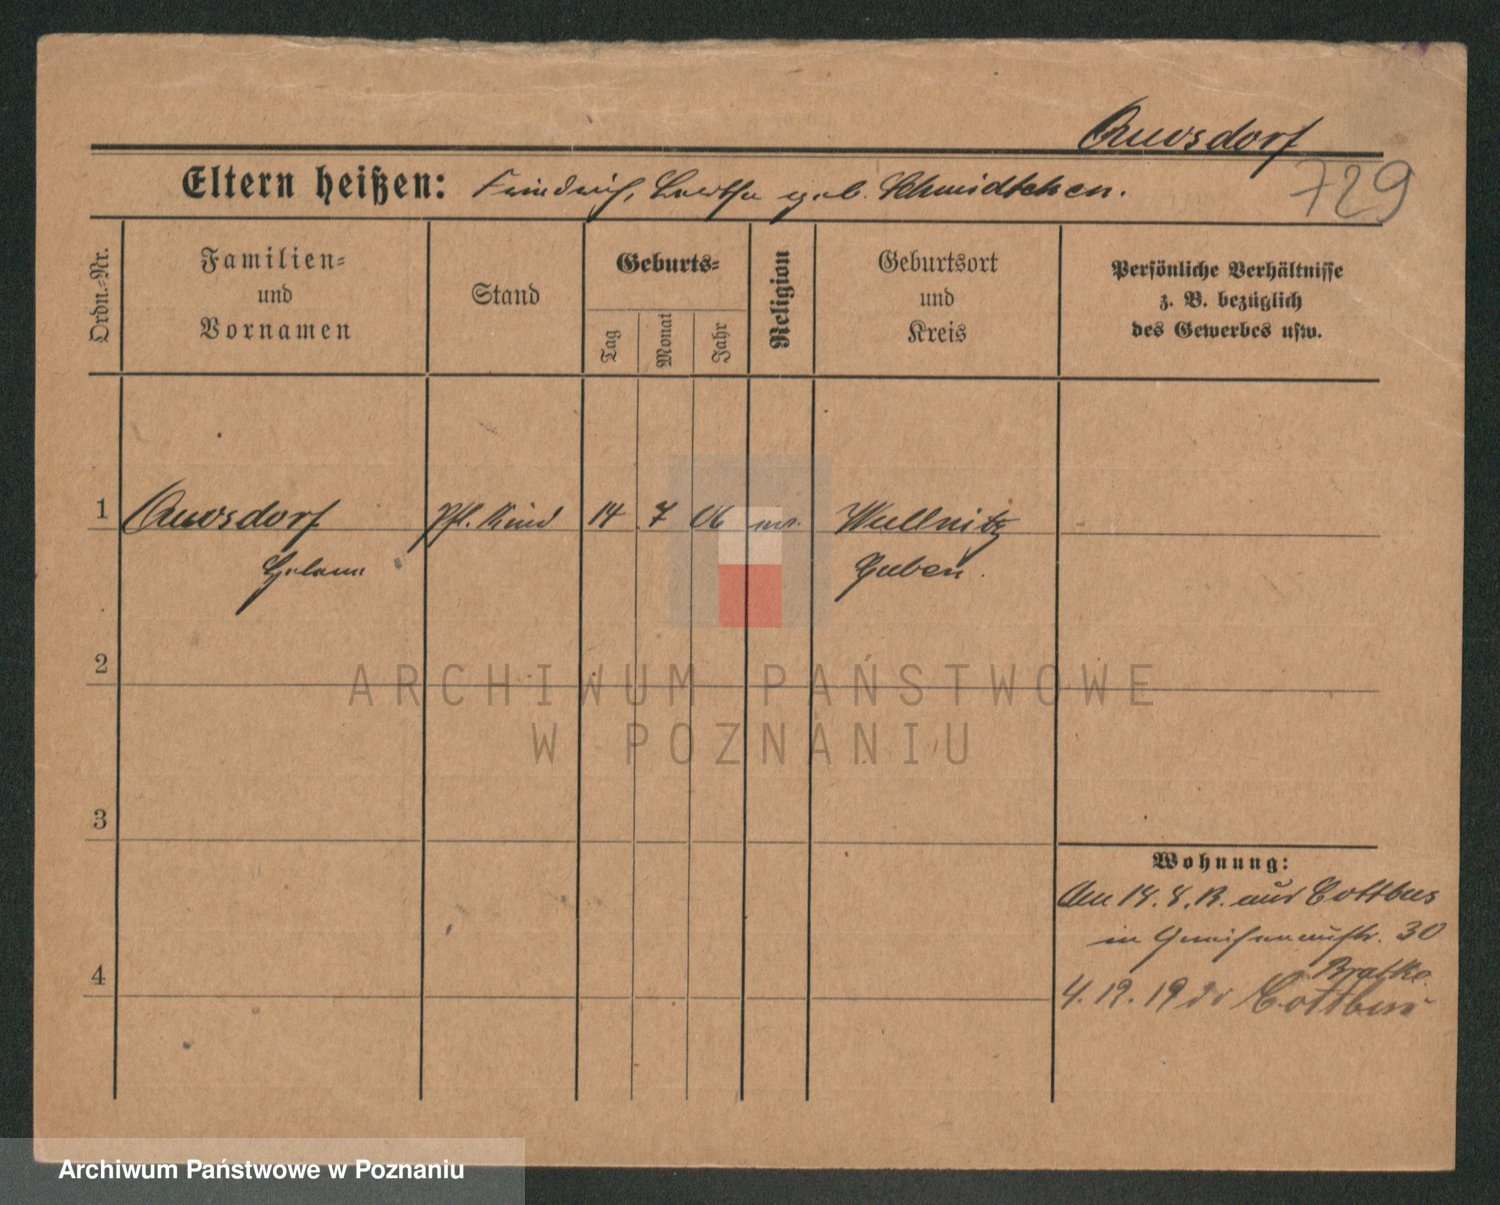 Auvsdorf
729
Eltern heißen: Friedrich, Bertha geb. Schmidtchen.
Ordn.-Nr.
Familien-
und
Vornamen
Stand
Geburts-
Tag
Monat
Jahr
Religion
Geburtsort
und
Kreis
Persönliche Verhältnisse
z. B. bezüglich
des Gewerbes usw.
1
Auvsdorf
Helene
Pfl. Kind
14
7
06
ev.
Wellnitz
Guben.
2
ARCHIWUM PAŃSTWOWE
W POZNANIU
3
Wohnung:
Am 14. 8. aus Cottbus
in Gneisenaustr. 30
Bratke
4
4. 12. 19 Cottbus
Archiwum Państwowe w Poznaniu